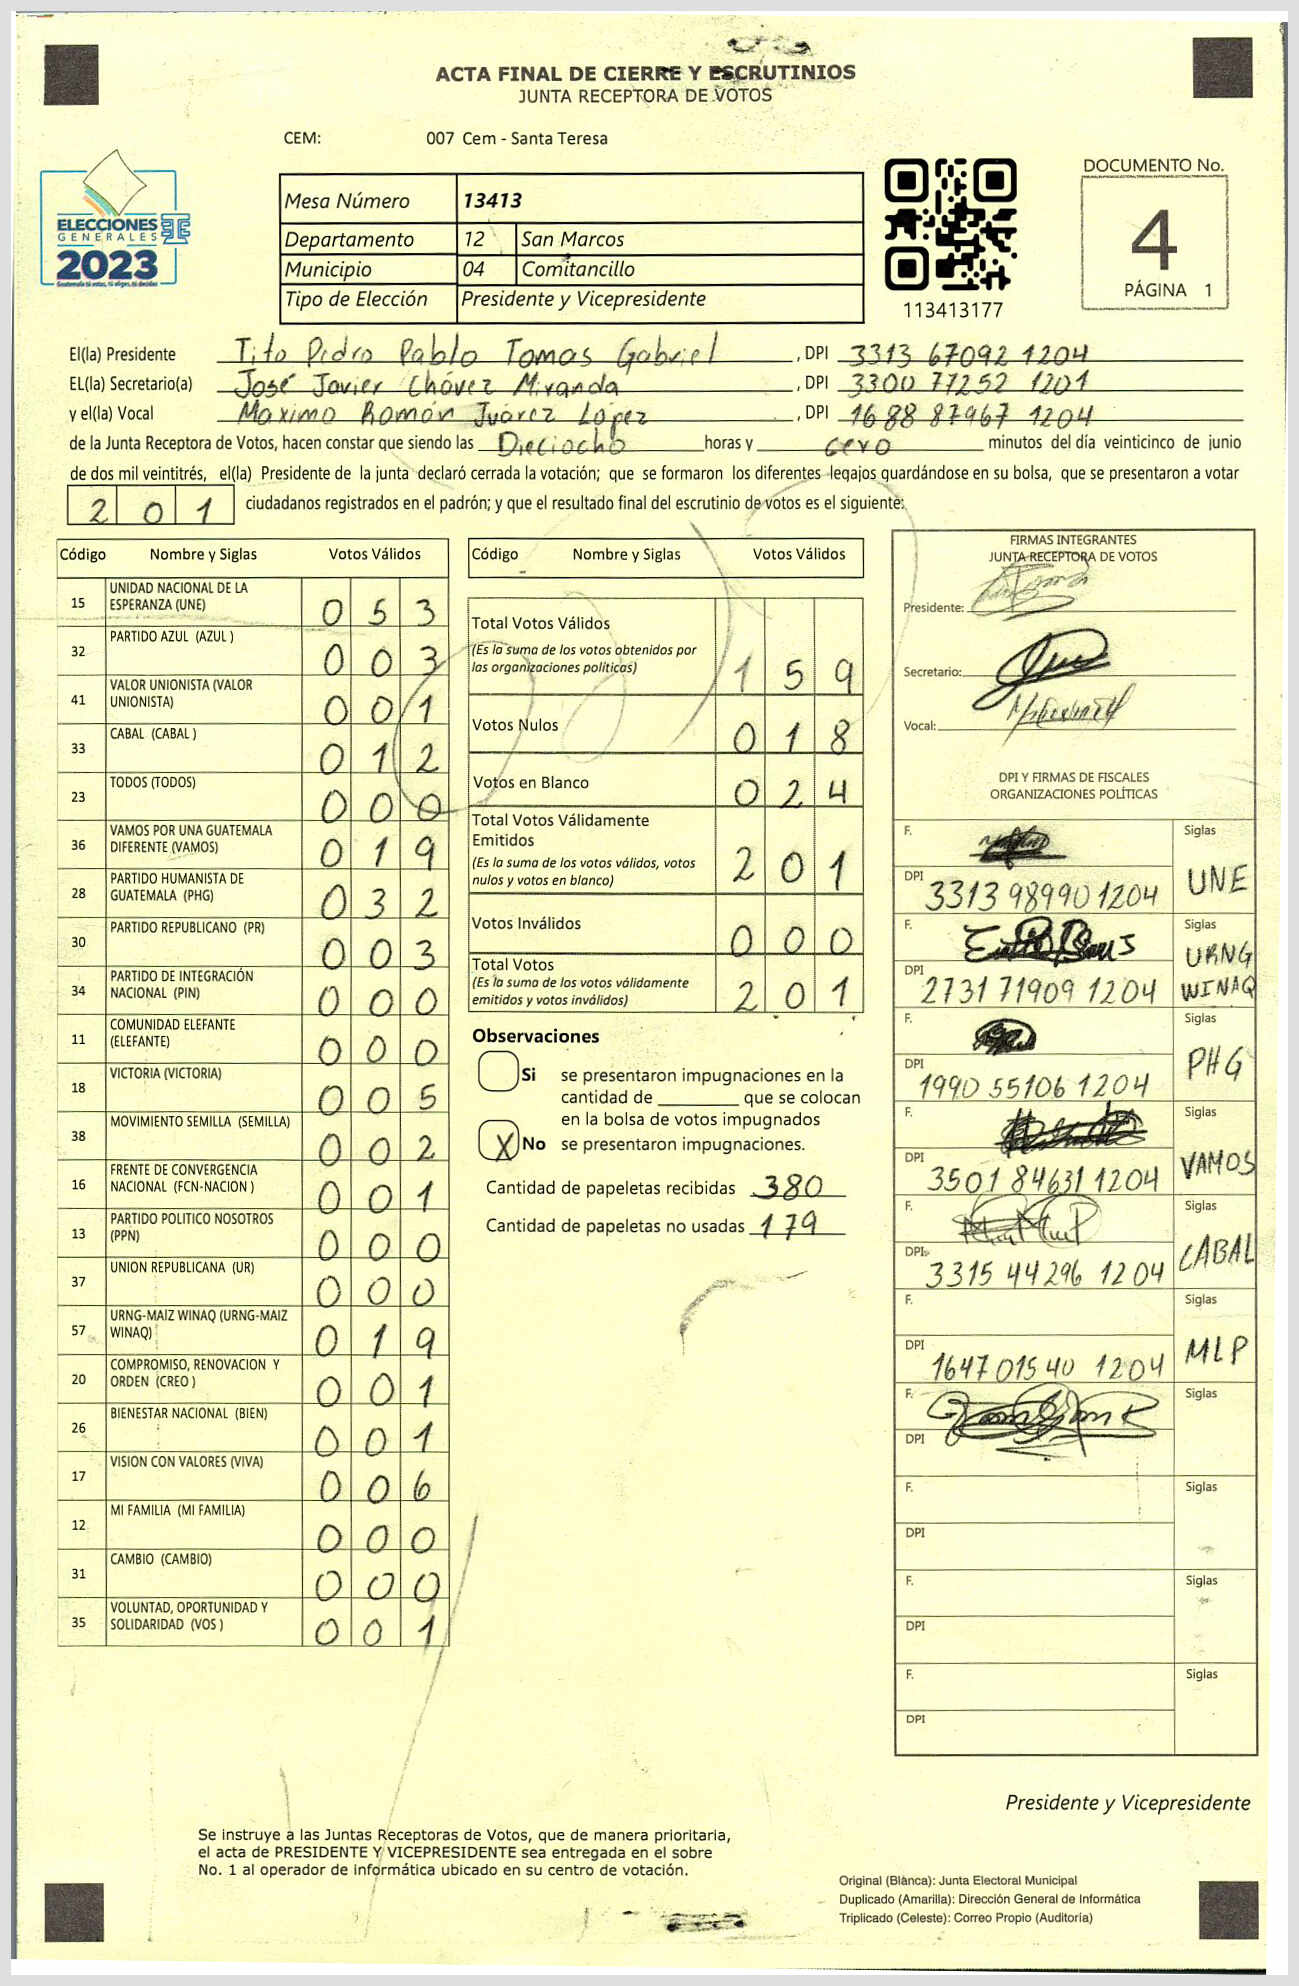 ACTA FINAL DE CIERRE Y ESCRUTINIOS
JUNTA RECEPTORA DE VOTOS
CEM: 007 Cem - Santa Teresa
ELECCIONES
GENERALES
2023
Guatemala tú votas, tú eliges, tú decides
Mesa Número 13413
Departamento 12 San Marcos
Municipio 04 Comitancillo
Tipo de Elección Presidente y Vicepresidente
113413177
DOCUMENTO No.
4
PÁGINA 1
El(la) Presidente Tito Pedro Pablo Tomas Gabriel , DPI 3313 67092 1204
EL(la) Secretario(a) José Javier Chávez Miranda , DPI 3300 77252 1201
y el(la) Vocal Maximo Román Juárez López , DPI 1688 87967 1204
de la Junta Receptora de Votos, hacen constar que siendo las Dieciocho horas y cero minutos del día veinticinco de junio
de dos mil veintitrés, el(la) Presidente de la junta declaró cerrada la votación; que se formaron los diferentes legajos guardándose en su bolsa, que se presentaron a votar
201 ciudadanos registrados en el padrón; y que el resultado final del escrutinio de votos es el siguiente:
Código Nombre y Siglas Votos Válidos
15 UNIDAD NACIONAL DE LA ESPERANZA (UNE) 053
32 PARTIDO AZUL (AZUL ) 003
41 VALOR UNIONISTA (VALOR UNIONISTA) 001
33 CABAL (CABAL ) 012
23 TODOS (TODOS) 000
36 VAMOS POR UNA GUATEMALA DIFERENTE (VAMOS) 019
28 PARTIDO HUMANISTA DE GUATEMALA (PHG) 032
30 PARTIDO REPUBLICANO (PR) 003
34 PARTIDO DE INTEGRACIÓN NACIONAL (PIN) 000
11 COMUNIDAD ELEFANTE (ELEFANTE) 000
18 VICTORIA (VICTORIA) 005
38 MOVIMIENTO SEMILLA (SEMILLA) 002
16 FRENTE DE CONVERGENCIA NACIONAL (FCN-NACION ) 001
13 PARTIDO POLITICO NOSOTROS (PPN) 000
37 UNION REPUBLICANA (UR) 000
57 URNG-MAIZ WINAQ (URNG-MAIZ WINAQ) 019
20 COMPROMISO, RENOVACION Y ORDEN (CREO ) 001
26 BIENESTAR NACIONAL (BIEN) 001
17 VISION CON VALORES (VIVA) 006
12 MI FAMILIA (MI FAMILIA) 000
31 CAMBIO (CAMBIO) 000
35 VOLUNTAD, OPORTUNIDAD Y SOLIDARIDAD (VOS ) 001
Código Nombre y Siglas Votos Válidos
Total Votos Válidos
(Es la suma de los votos obtenidos por
las organizaciones políticas) 159
Votos Nulos 018
Votos en Blanco 024
Total Votos Válidamente
Emitidos
(Es la suma de los votos válidos, votos
nulos y votos en blanco) 201
Votos Inválidos 000
Total Votos
(Es la suma de los votos válidamente
emitidos y votos inválidos) 201
Observaciones
Si se presentaron impugnaciones en la
cantidad de ________ que se colocan
en la bolsa de votos impugnados
X No se presentaron impugnaciones.
Cantidad de papeletas recibidas 380
Cantidad de papeletas no usadas 179
FIRMAS INTEGRANTES
JUNTA RECEPTORA DE VOTOS
Presidente:
Secretario:
Vocal:
DPI Y FIRMAS DE FISCALES
ORGANIZACIONES POLÍTICAS
F. Siglas
DPI 3313 98990 1204 UNE
F. Siglas
DPI 2731 71909 1204 URNG WINAQ
F. Siglas
DPI 1990 55106 1204 PHG
F. Siglas
DPI 3501 84631 1204 VAMOS
F. Siglas
DPI 3315 44296 1204 CABAL
F. Siglas
DPI 1647 01540 1204 MLP
F. Siglas
DPI
F. Siglas
DPI
F. Siglas
DPI
F. Siglas
DPI
Presidente y Vicepresidente
Se instruye a las Juntas Receptoras de Votos, que de manera prioritaria,
el acta de PRESIDENTE Y VICEPRESIDENTE sea entregada en el sobre
No. 1 al operador de informática ubicado en su centro de votación.
Original (Blanca): Junta Electoral Municipal
Duplicado (Amarilla): Dirección General de Informática
Triplicado (Celeste): Correo Propio (Auditoría)